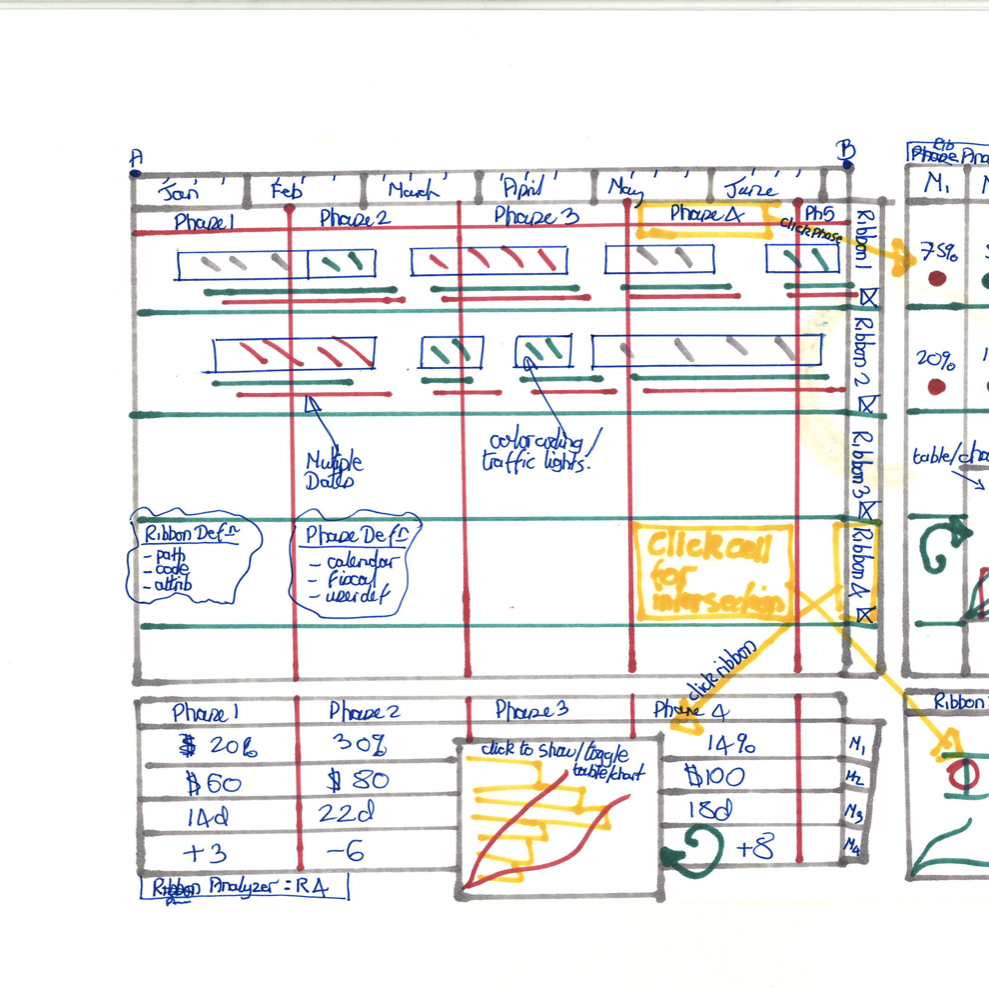 A
B
Jan
Feb
March
April
May
June
Phase 1
Phase 2
Phase 3
Phase 4
Ph5
Click Phase
Ribbon 1
Ribbon 2
Ribbon 3
Ribbon 4
Multiple
Dates
color coding /
traffic lights.
Ribbon Defn
- path
- code
- attrib
Phase Defn
- calendar
- fiscal
- userdef
Click cell
for
intersection
click ribbon
Phase 1
Phase 2
Phase 3
Phase 4
$ 20%
30%
14%
M1
$60
$80
$100
M2
14d
22d
18d
M3
+3
-6
+8
M4
click to show/toggle
table/chart
Ribbon Analyzer = RA
Rib
Phase Ana
M1
75%
20%
table/cha
Ribbon